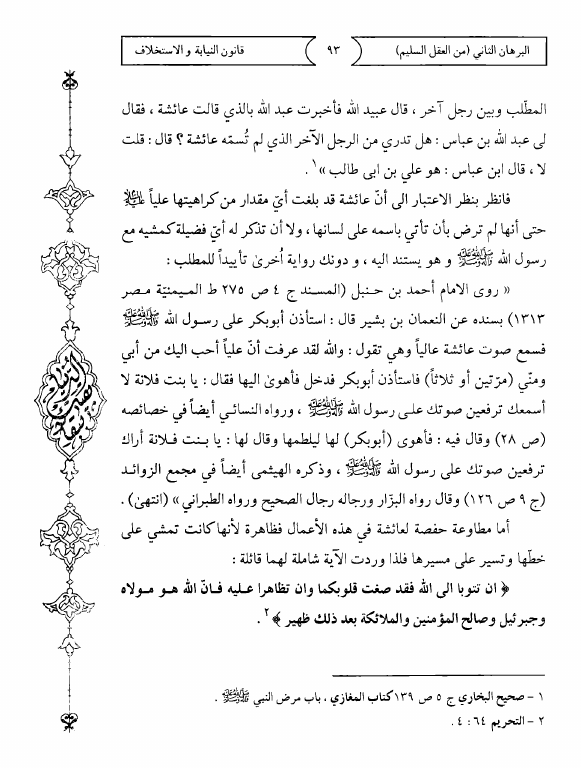 البرهان الثاني (من العقل السليم)
٩٣
قانون النيابة و الاستخلاف
المطّلب وبين رجل آخر ، قال عبيد الله فأخبرت عبد الله بالذي قالت عائشة ، فقال
لى عبد الله بن عباس : هل تدري من الرجل الآخر الذي لم تُسمّه عائشة ؟ قال : قلت
لا ، قال ابن عباس : هو علي بن ابى طالب »١ .
فانظر بنظر الاعتبار الى أنّ عائشة قد بلغت أيّ مقدار من كراهيتها علياً عليه السلام
حتى أنها لم ترض بأن تأتي باسمه على لسانها ، ولا أن تذكر له أيّ فضيلة كمشيه مع
رسول الله ﷺ و هو يستند اليه ، و دونك رواية اُخرىٰ تأييداً للمطلب :
« روى الامام أحمد بن حنبل (المسند ج ٤ ص ٢٧٥ ط الميمنيّة مصر
١٣١٣) بسنده عن النعمان بن بشير قال : استأذن أبوبكر على رسول الله ﷺ
فسمع صوت عائشة عالياً وهي تقول : والله لقد عرفت أنّ علياً أحب اليك من أبي
ومنّي (مرّتين أو ثلاثاً) فاستأذن أبوبكر فدخل فأهوىٰ اليها فقال : يا بنت فلانة لا
أسمعك ترفعين صوتك على رسول الله ﷺ ، ورواه النسائي أيضاً في خصائصه
(ص ٢٨) وقال فيه : فأهوى (أبوبكر) لها ليلطمها وقال لها : يا بنت فلانة أراك
ترفعين صوتك على رسول الله ﷺ ، وذكره الهيثمى أيضاً في مجمع الزوائد
(ج ٩ ص ١٢٦) وقال رواه البزّار ورجاله رجال الصحيح ورواه الطبراني » (انتهىٰ) .
أما مطاوعة حفصة لعائشة في هذه الأعمال فظاهرة لأنها كانت تمشي على
خطّها وتسير على مسيرها فلذا وردت الآية شاملة لهما قائلة :
﴿ ان تتوبا الى الله فقد صغت قلوبكما وان تظاهرا عليه فانّ الله هو مولاه
وجبرئيل وصالح المؤمنين والملائكة بعد ذلك ظهير ﴾٢ .
١ - صحيح البخاري ج ٥ ص ١٣٩ كتاب المغازي ، باب مرض النبي ﷺ .
٢ - التحريم ٦٤ : ٤ .